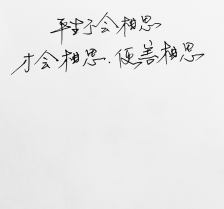 平生不会相思
才会相思.便害相思